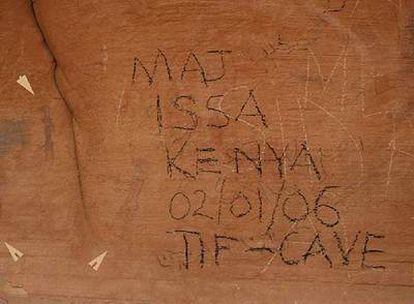 MAJ
ISSA
KENYA
02/01/06
TIF-CAVE